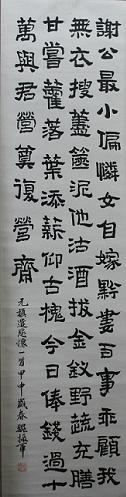 謝公最小偏憐女自嫁黔婁百事乖顧我
無衣搜藎篋泥他沽酒拔金釵野蔬充膳
甘嘗藿落葉添薪仰古槐今日俸錢過十
萬與君營奠復營齋
元稹遣悲懷一首甲申盛春